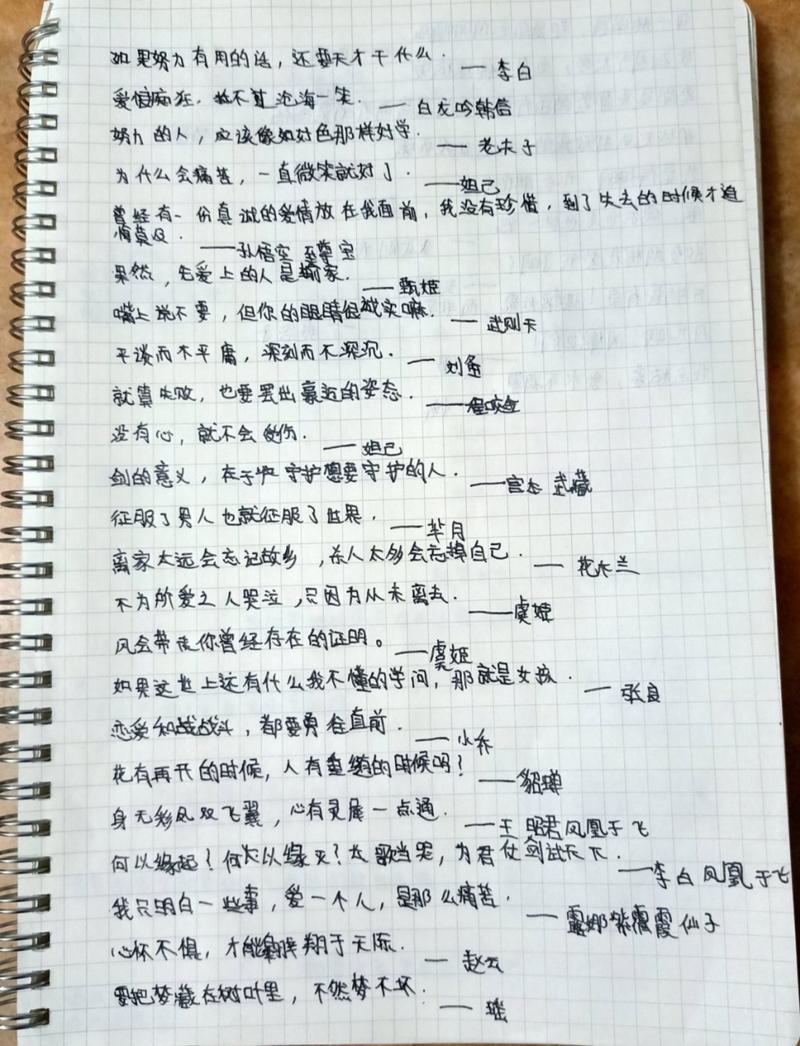 如果努力有用的话，还要天才干什么. —李白
爱恨痴狂，敌不过沧海一笑. —白龙吟韩信
努力的人，应该像好好色那样好学. —老夫子
为什么会痛苦，一直微笑就好了. —妲己
曾经有一份真诚的爱情放在我面前，我没有珍惜，到了失去的时候才追
悔莫及. —孙悟空 至尊宝
果然，先爱上的人是输家. —甄姬
嘴上说不要，但你的眼睛很诚实嘛. —武则天
平淡而不平庸，深刻而不深沉. —刘备
就算失败，也要摆出豪迈的姿态. —程咬金
没有心，就不会受伤. —妲己
剑的意义，在于守护想要守护的人. —宫本 武藏
征服了男人也就征服了世界. —芈月
离家太远会忘记故乡，杀人太多会忘掉自己. —花木兰
不为所爱之人哭泣，只因为从未离去. —虞姬
风会带走你曾经存在的证明。 —虞姬
如果这世上还有什么我不懂的学问，那就是女孩. —张良
恋爱和战战斗，都要勇往直前. —小乔
花有再开的时候，人有重逢的时候吗? —貂蝉
身无彩凤双飞翼，心有灵犀一点通. —王昭君凤凰于飞
何以缘起?何以缘灭?长歌当哭，为君仗剑试天下. —李白凤凰于飞
我只明白一些事，爱一个人，是那么痛苦. —露娜紫霞仙子
心怀不惧，才能翱翔于天际. —赵云
要把梦藏在树叶里，不然梦不坏. —瑶